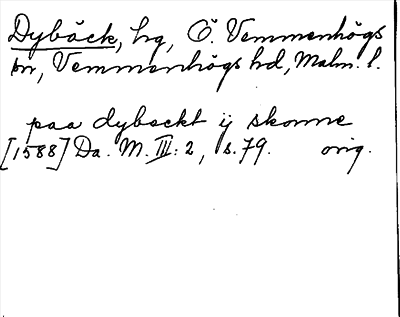 Dybäck, hg, Ö. Vemmenhögs
sn, Vemmenhögs hd, Malm. l.
paa dybeckt ij skonne
[1588] Da. M. III: 2, s. 79. orig.